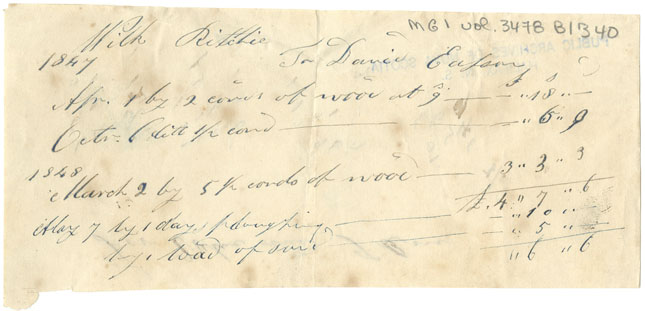 MG 1 vol. 3478 B1340
Wilk Ritchie To David Easson
1847 £ S D
Apr. 1 by 2 cords of wood at 9 — " 18 "
Octr. 6 ditt ½ cord — " 6 " 9
1848
March 2 by 5 ½ cords of wood — 3 " 3 " 3
£ 4 " 7 " 6
May 7 by 1 days ploughing — " 10 "
by 1 load of — " 5 "
" 6 " 6